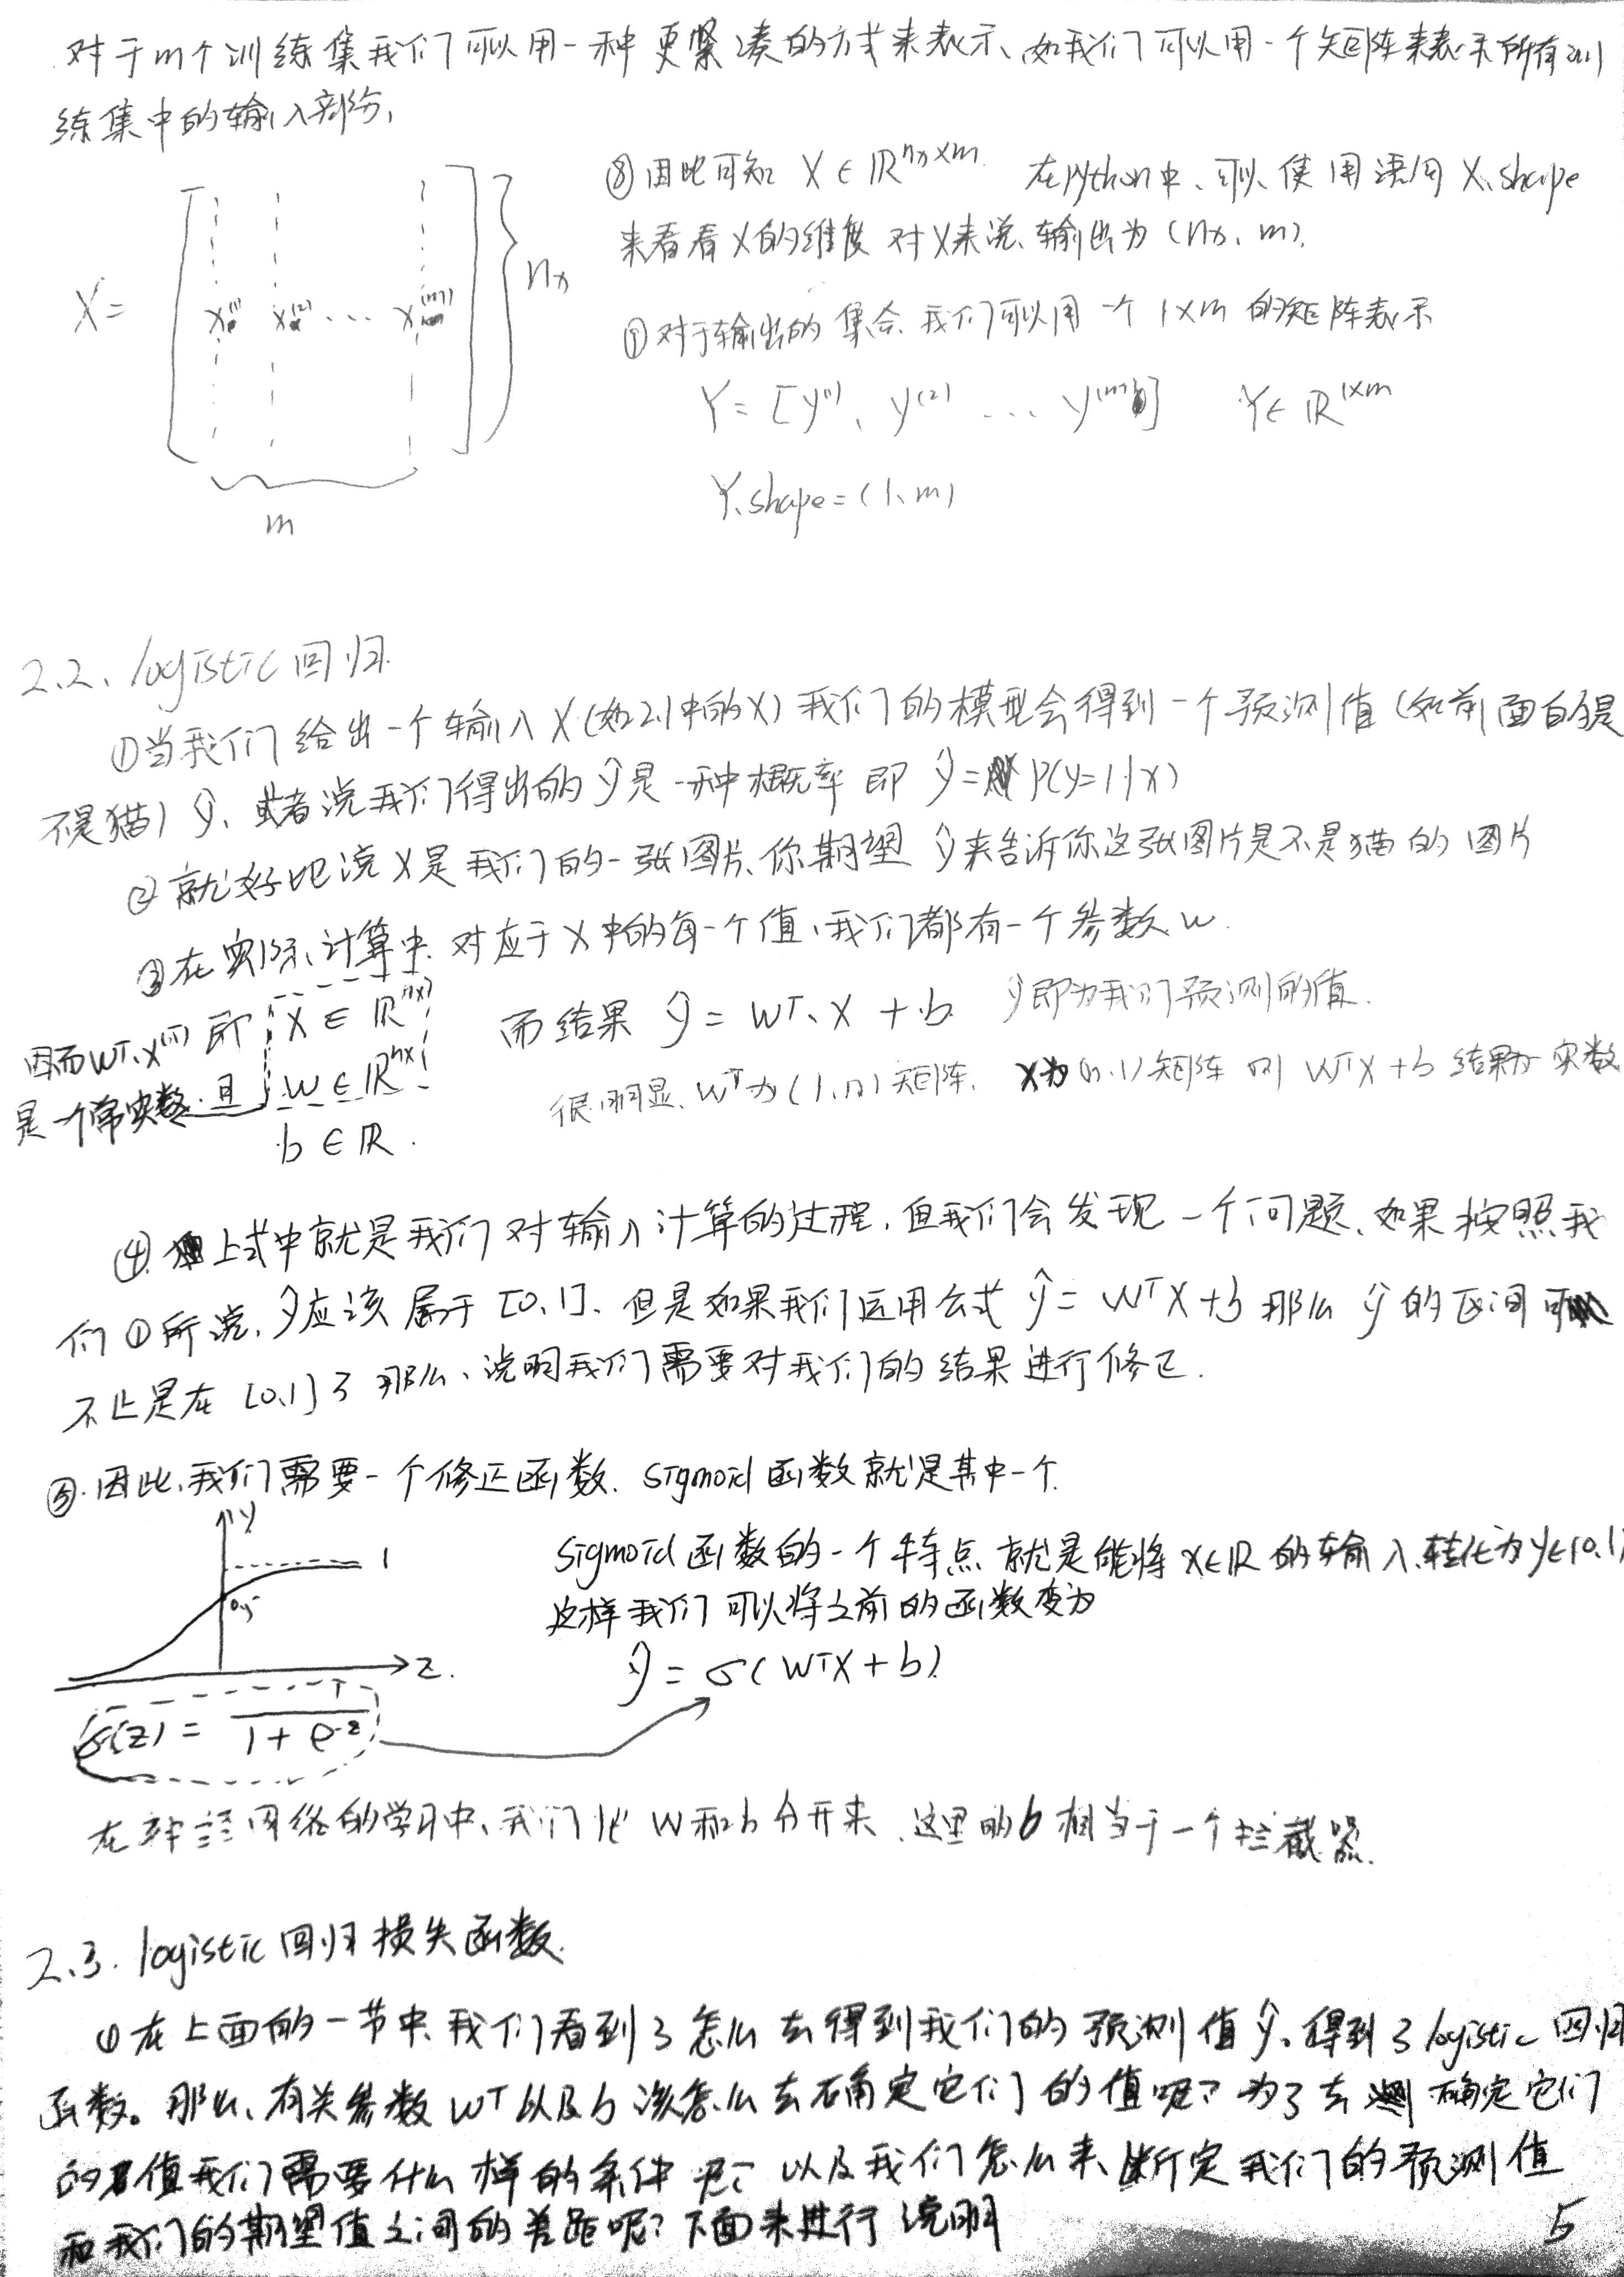 对于m个训练集我们可以用一种更紧凑的方式来表示、如我们可以用一个矩阵来表示所有训
练集中的输入部分,
X = [x⁽¹⁾ x⁽²⁾ ... x⁽ᵐ⁾] nx
m
⑧因此可知 X ∈ ℝ^(nx×m) 在python中、可以使用语句 X.shape
来看看X的维度 对X来说、输出为 (nx, m).
对于输出的集合、我们可以用一个 1×m 的矩阵表示
Y = [y⁽¹⁾、y⁽²⁾ ... y⁽ᵐ⁾] Y ∈ ℝ^(1×m)
Y.shape = (1、m)
2.2、logistic回归.
①当我们给出一个输入X(如2.1中的X) 我们的模型会得到一个预测值 (如前面的是
不是猫) ŷ、或者说我们得出的ŷ是一种概率 即 ŷ = P(y=1|x)
②就好比说X是我们的一张图片、你期望 ŷ来告诉你这张图片是不是猫的图片
③在实际计算中、对应于X中的每一个值、我们都有一个参数w.
因而Wᵀ.x⁽ⁱ⁾即
是一个常实数. 且
X ∈ ℝ^(nx)
w ∈ ℝ^(nx)
b ∈ ℝ.
而结果 ŷ = Wᵀ、X + b ŷ即为我们预测的值.
很明显、Wᵀ为(1,n)矩阵、X为(n,1)矩阵 则 WᵀX + b 结果为实数
④上式中就是我们对输入计算的过程、但我们会发现一个问题、如果按照我
们①所说、ŷ应该属于[0、1]、但是如果我们运用公式 ŷ = WᵀX + b 那么 ŷ 的区间可
不止是在 [0、1]了 那么、说明我们需要对我们的结果进行修正.
⑤.因此、我们需要一个修正函数. sigmoid函数就是其中一个.
y
1
0.5
z.
σ(z) = 1 / (1 + e^(-z))
sigmoid函数的一个特点 就是能将 x∈ℝ 的输入、转化为y∈[0、1]
这样我们可以将之前的函数变为
ŷ = σ(WᵀX + b)
在神经网络的学习中、我们把 W和b分开来、这里的b相当于一个拦截器.
2.3. logistic回归损失函数.
①在上面的一节中、我们看到了怎么去得到我们的预测值ŷ、得到了logistic回归
函数。那么、有关参数Wᵀ以及b该怎么去确定它们的值呢? 为了去确定它们
的值我们需要什么样的条件呢? 以及我们怎么来断定我们的预测值
和我们的期望值之间的差距呢? 下面来进行说明
5